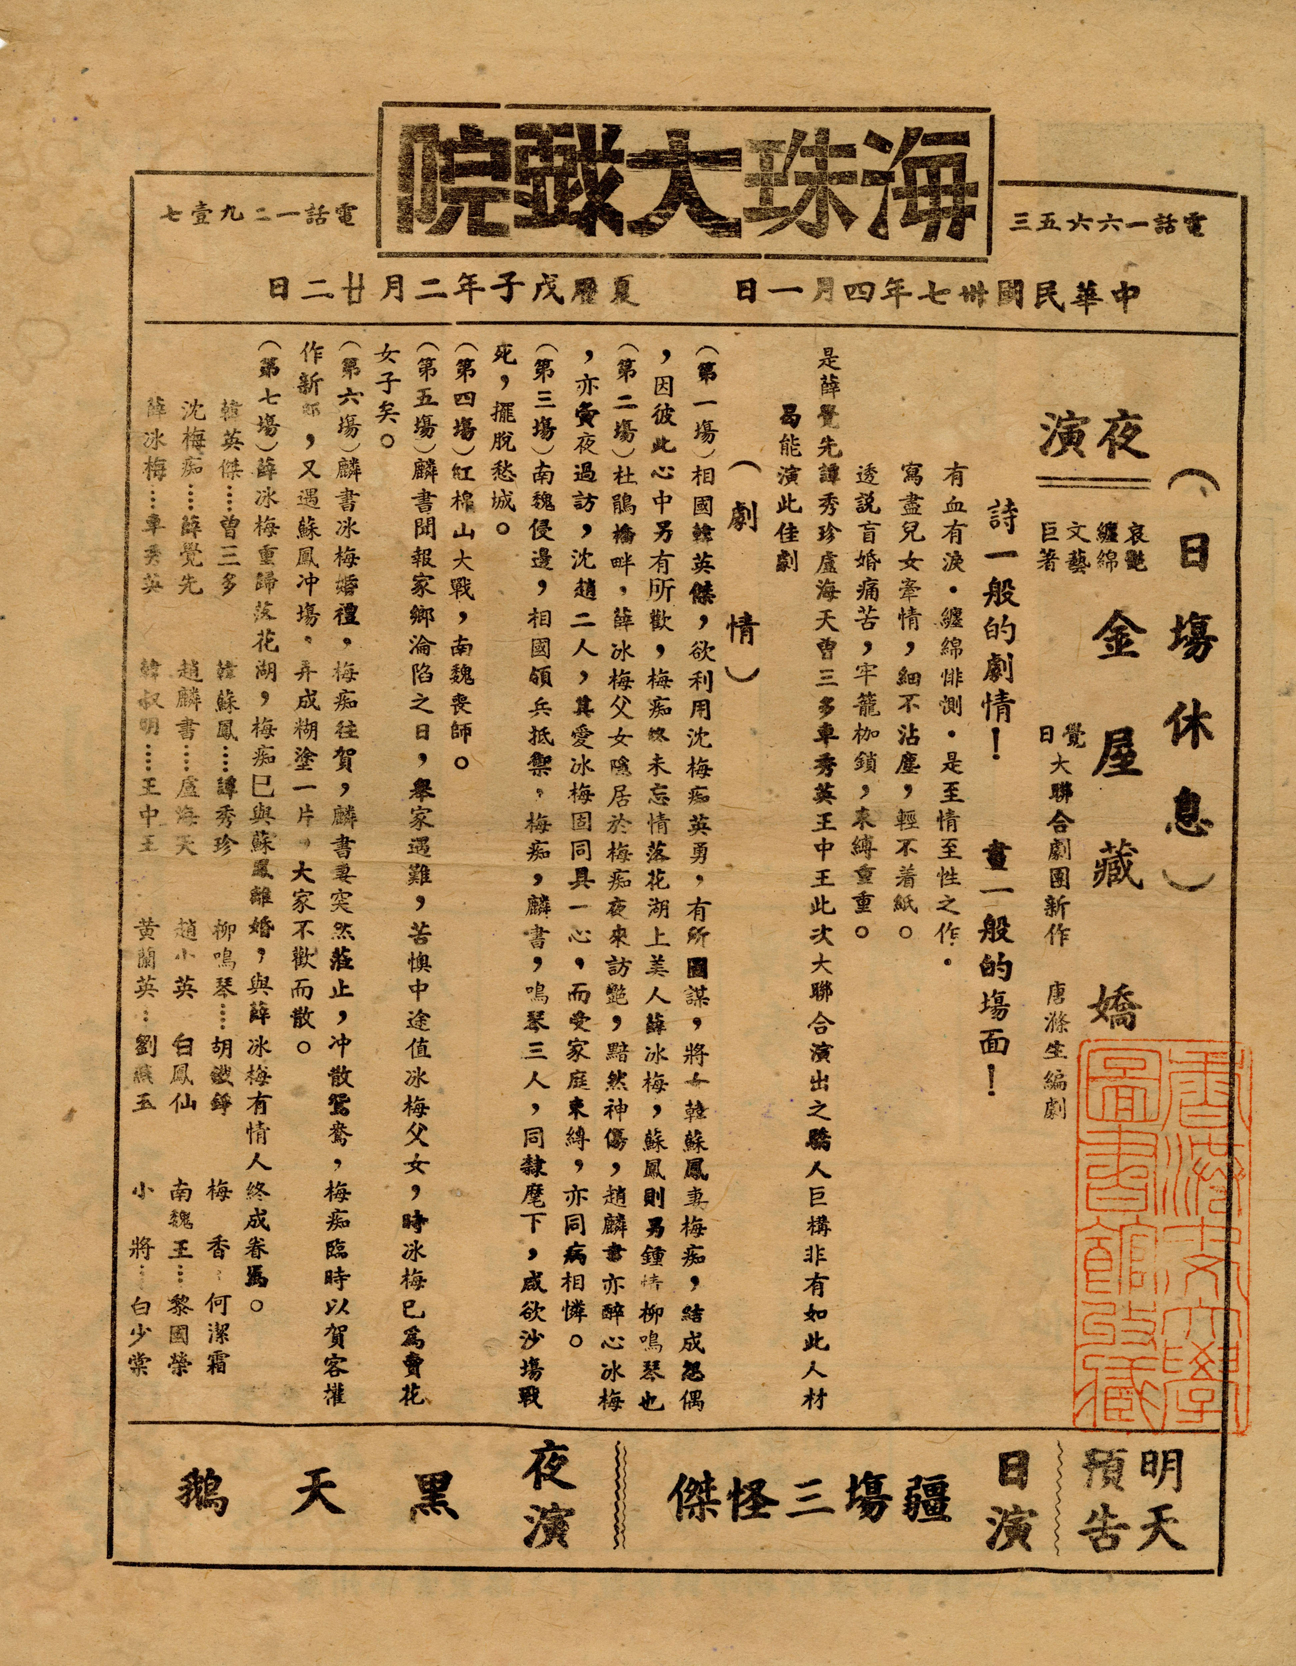 海珠大戲院
電話一六六五三
電話一二九壹七
中華民國卅七年四月一日
夏曆戊子年二月廿二日
（日塲休息）
夜演
哀艷纏綿
文藝巨著
金屋藏嬌
覺日大聯合劇團新作
唐滌生編劇
詩一般的劇情！
畫一般的塲面！
有血有淚・纏綿悱測・是至情至性之作・
寫盡兒女牽情，細不沾塵，輕不着紙。
透説盲婚痛苦，牢籠枷鎖，束縛重重。
是薛覺先譚秀珍盧海天曾三多車秀英王中王此次大聯合演出之驕人巨構非有如此人材
曷能演此佳劇
（劇情）
（第一塲）相國韓英傑，欲利用沈梅痴英勇，有所圖謀，將女韓蘇鳳妻梅痴，結成怨偶
，因彼此心中另有所歡，梅痴終未忘情落花湖上美人薛冰梅，蘇鳳則另鍾情柳鳴琴也
（第二塲）杜鵑橋畔，薛冰梅父女隱居於梅痴夜來訪艷，黯然神傷，趙麟書亦醉心冰梅
，亦夤夜過訪，沈趙二人，其愛冰梅固同具一心，而受家庭束縛，亦同病相憐。
（第三塲）南魏侵邊，相國領兵抵禦，梅痴，麟書，鳴琴三人，同隸麾下，咸欲沙塲戰
死，擺脫愁城。
（第四塲）紅棉山大戰，南魏喪師。
（第五塲）麟書聞報家鄉淪陷之日，舉家遇難，苦懊中途值冰梅父女，時冰梅已爲賣花
女子矣。
（第六塲）麟書冰梅婚禮，梅痴往賀，麟書妻突然蒞止，冲散鴛鴦，梅痴臨時以賀客權
作新郎，又遇蘇鳳冲塲，弄成糊塗一片，大家不歡而散。
（第七塲）薛冰梅重歸落花湖，梅痴巳與蘇鳳離婚，與薛冰梅有情人終成眷焉。
韓英傑……曾三多 韓蘇鳳……譚秀珍 柳鳴琴……胡鐵錚 梅香…何潔霜
沈梅痴……薛覺先 趙麟書……盧海天 趙小英 白鳳仙 南魏王…黎國榮
薛冰梅……車秀英 韓叔明……王中王 黃蘭英…劉燕玉 小將…白少棠
明天預告
日演
疆塲三怪傑
夜演
黑天鵝
香港大學圖書館攷藏